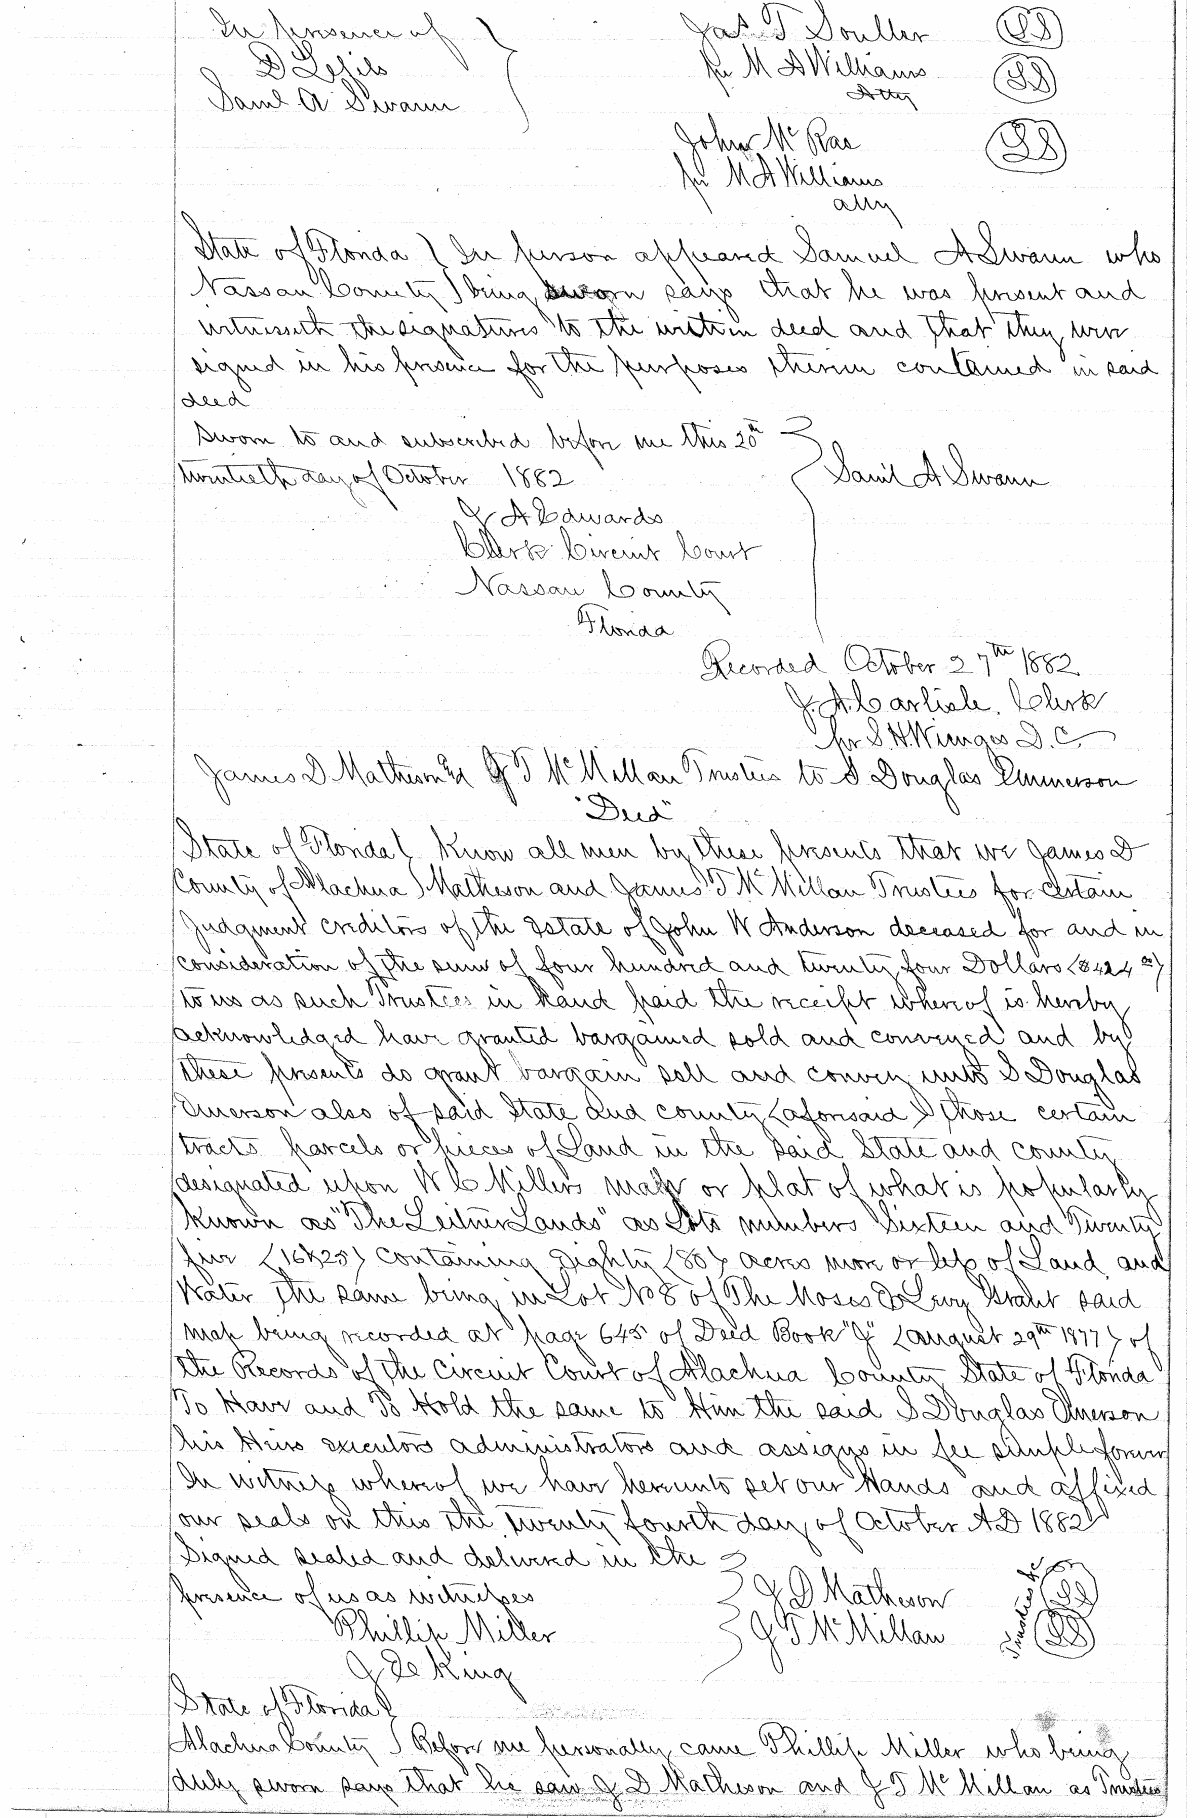 In presence of } Jas. T Soutter LS
D Lefils per M A Williams LS
Saml A Swann Atty
John McRae LS
per M A Williams
atty
State of Florida } In person appeared Samuel A Swann who
Nassau County } being sworn says that he was present and
witnesseth the signatures to the within deed and that they were
signed in his presence for the purposes therein contained in said
deed
Sworn to and subscribed before me this 20th
twentieth day of October 1882 Saml A Swann
J A Edwards
Clerk Circuit Court
Nassau County
Florida
Recorded October 27th 1882
J. A. Carlisle, Clerk
per S. H. Wienges D.C.
James D Matheson &d J T McMillan Trustees to S Douglas Emmerson
"Deed"
State of Florida } Know all men by these presents that we James D
County of Alachua } Matheson and James T McMillan Trustees for certain
Judgment creditors of the Estate of John W Anderson deceased for and in
consideration of the sum of four hundred and twenty four Dollars ($424 00)
to us as such Trustees in hand paid the receipt whereof is hereby
acknowledged have granted bargained sold and conveyed and by
these presents do grant bargain sell and convey unto S Douglas
Emerson also of said State and county (aforesaid) those certain
tracts parcels or pieces of Land in the said State and county
designated upon W C Millers map or plat of what is popularly
known as "The Leitner Lands" as Lots numbers Sixteen and Twenty
five (16&25) containing Eighty (80) acres more or less of Land and
Water the same being in Lot No 8 of The Moses E Levy Grant said
map being recorded at page 645 of Deed Book "J" (august 29th 1877) of
the Records of the Circuit Court of Alachua County State of Florida
To Have and To Hold the same to Him the said S Douglas Emerson
his Heirs executors administrators and assigns in fee simple forever
In witness whereof we have hereunto set our Hands and affixed
our seals on this the twenty fourth day of October A.D 1882
Signed sealed and delivered in the
presence of us as witnesses J D Matheson LS
Phillip Miller J T McMillan LS
J De King Trustees &c
State of Florida }
Alachua County } Before me personally came Phillip Miller who being
duly sworn says that he saw J D Matheson and J T McMillan as Trustees